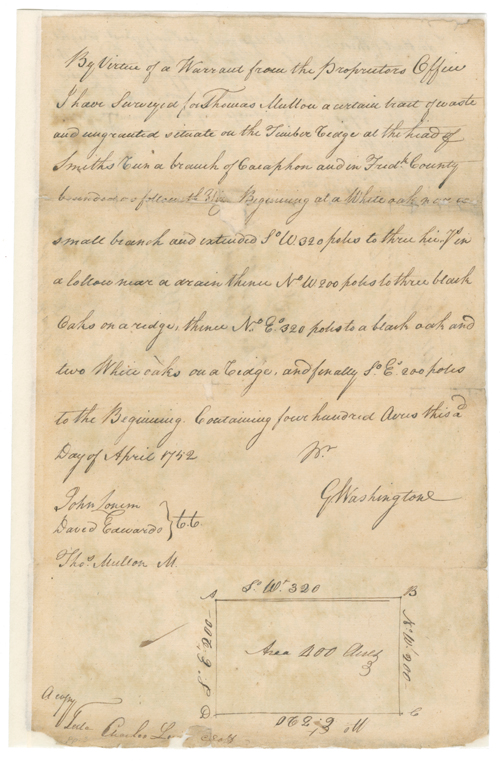 By Virtue of a Warrant from the Proprietors Office
I have Surveyed for Thomas Mullon a certain tract of waste
and ungranted situate on the Timber Redge at the head of
Smiths Run a branch of Cacaphon and in Fredk. County
bounded as followeth Viz Beginning at a White oak near a
small branch and extended So. W. 320 poles to three
a bottom near a drain thence No W 200 poles to three black
Oaks on a redge, thence No. Et. 320 poles to a black oak and
two White oaks on a Redge, and finally So Et. 200 poles
to the Beginning. Containing four hundred Acres this 2d
Day of April 1752 Pr.
GWashington
John Lonem
David Edwards } C.C.
Thos. Mullon M.
A So. Wt. 320 B
So Et. 200
Area 400 Acres
No Wt. 200
D No Et. 320 C
A copy
Teste Charles